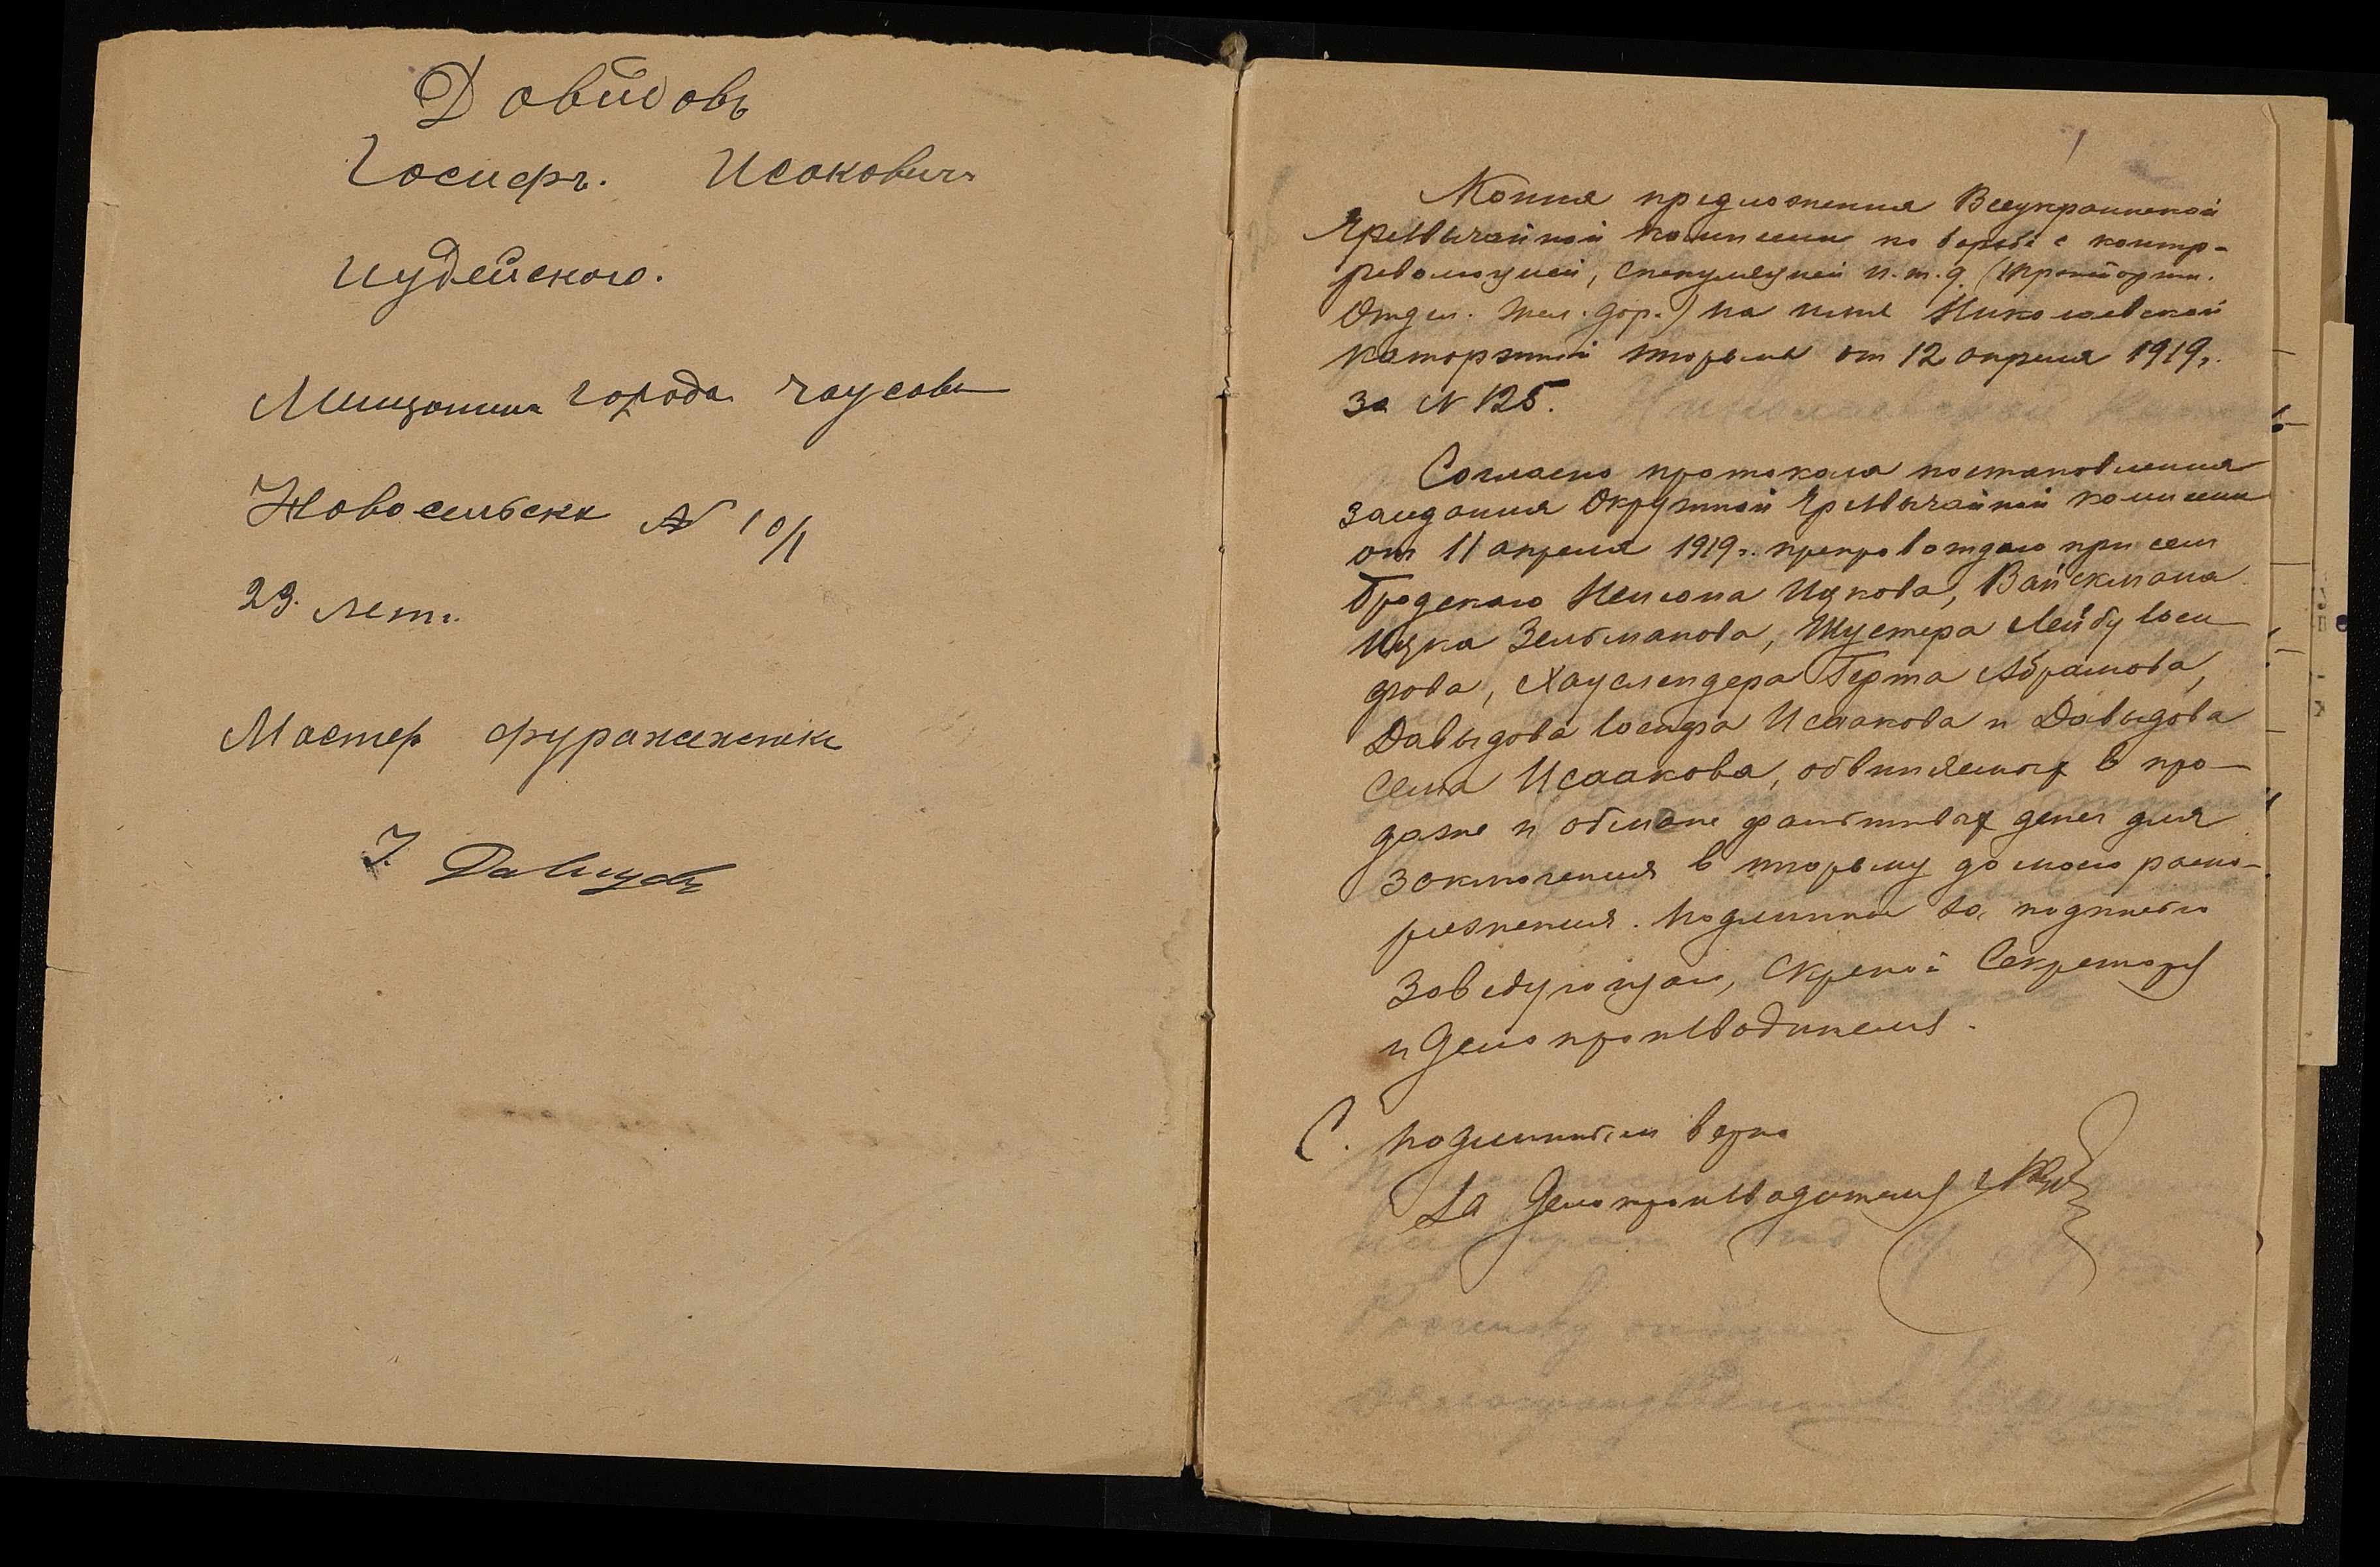 Довидовъ
Иосифъ. Исоковичъ
иудейского.
Мищонинъ города чаусовы
Новосельска № 10/1
29. лет.
Мастер фуражечник
И. Давидовъ
1
Копия предложения Всеукраинской
Чрезвычайной комиссии по борьбе с контр-
революцией, спекуляцией и.т.д. (
Отдел. жел. дор.) на имя Николаевской
каторжной тюрьмы от 12 апреля 1919г.
за N 125.
Согласно протокола постановления
заседания Окружной Чрезвычайной комиссии
от 11 апреля 1919г. препровождаю при сем
Бродского Ицкова, Вайсмана
Ицка Зельманова, Шустера Лейбу Иоси-
фова, Хауслендера Герша Абрамова,
Давыдова Иосифа Исаакова и Давыдова
Исаакова, обвиняемых в про-
даже и обмане фальшивых денег для
заключения в тюрьму до моего распо-
ряжения. Подлинное за подписью
Заведующаго, скрепой Секретаря
и Делопроизводителя.
С. подлинным верно
За Делопроизводителя